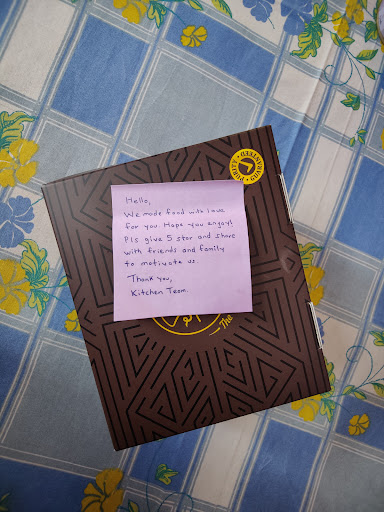 PURITY • GUARANTEED •
Hello,
We made food with love
for you. Hope you enjoy!
Pls give 5 star and share
with friends and family
to motivate us.
Thank you,
Kitchen Team.
The